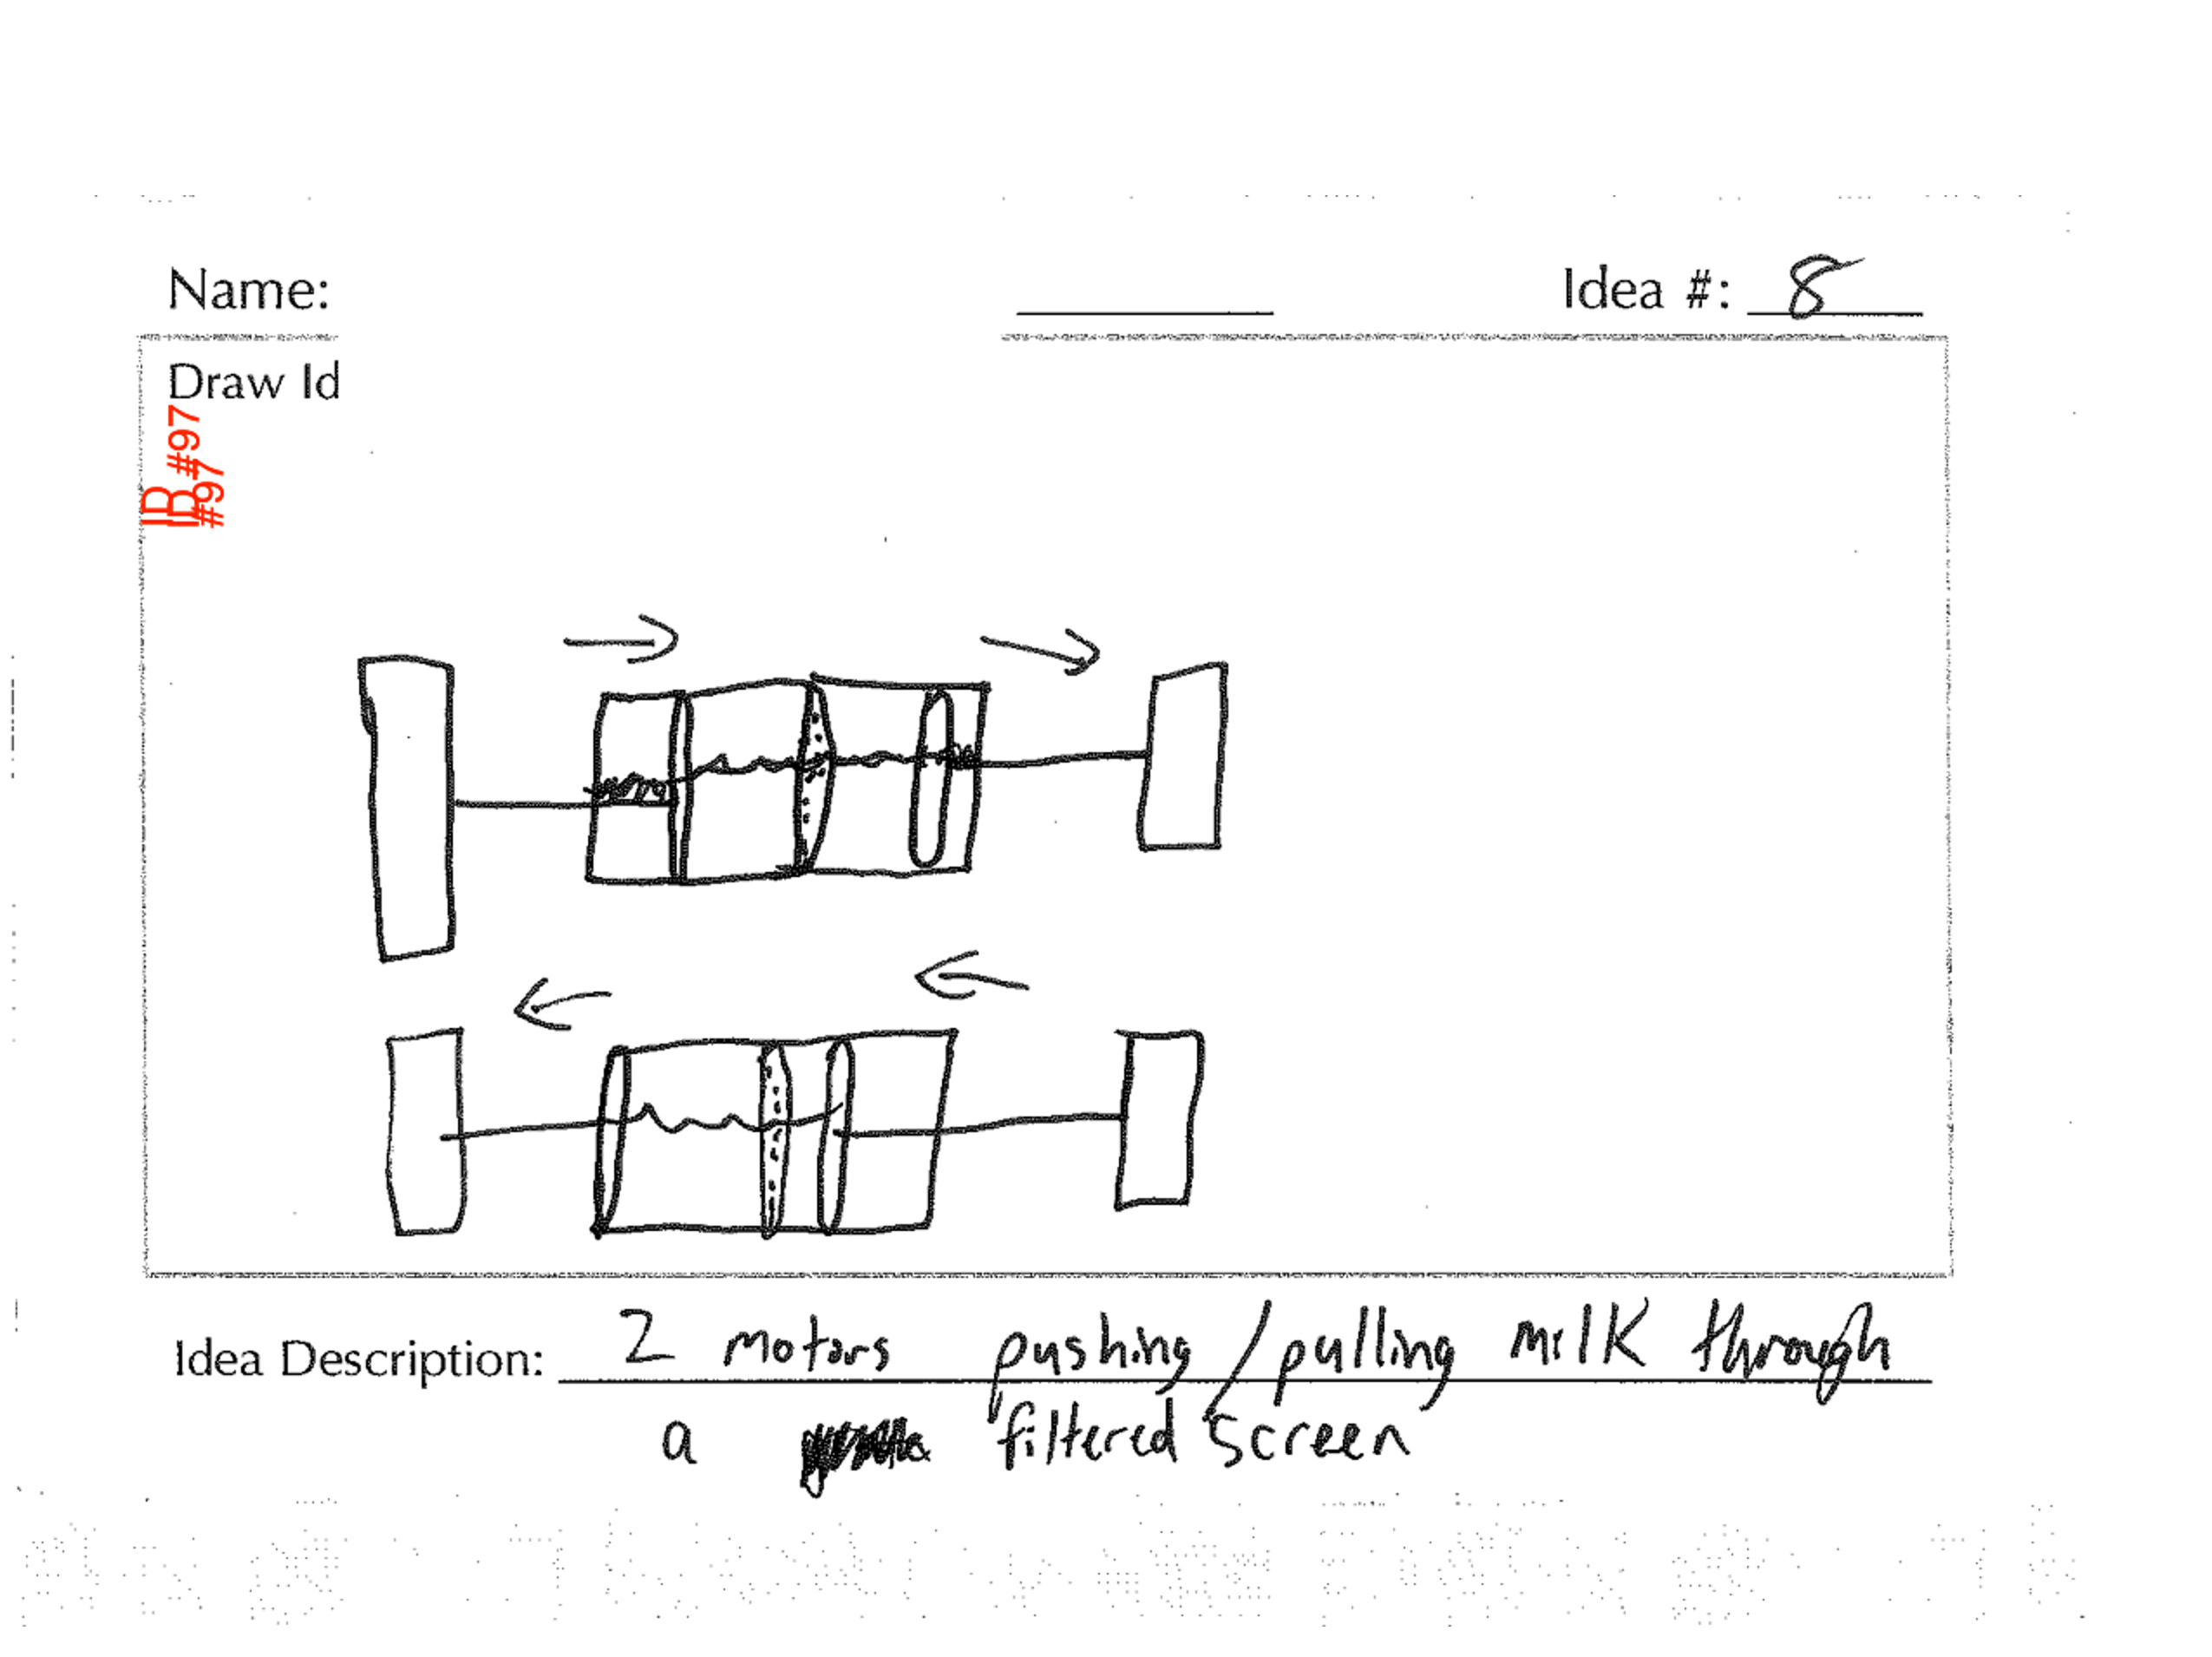 Name: Idea #: 8
Draw Id
ID #97
ID
#97
Idea Description: 2 motors pushing/pulling milk through
a filtered screen